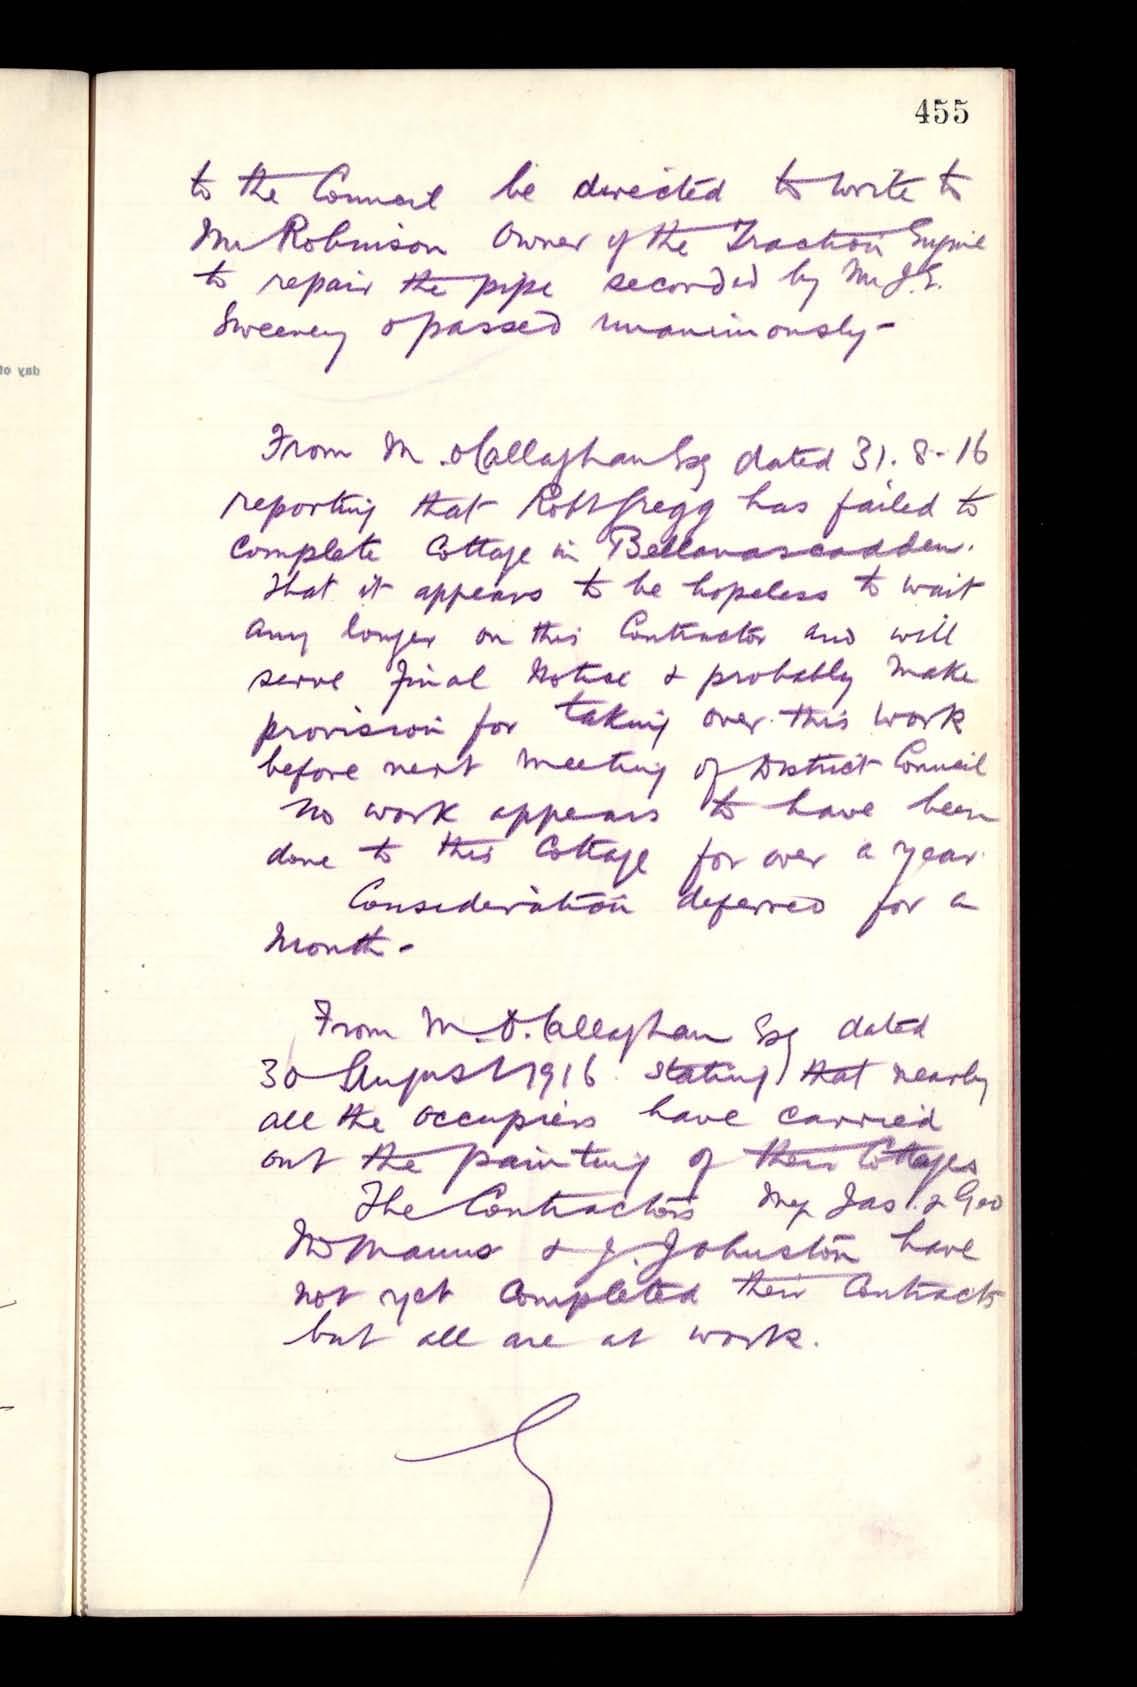 455
to the Council be directed to write to
Mr Robinson Owner of the Traction Engine
to repair the pipe seconded by Mr J.E.
Sweeney & passed unanimously -
day of
From M. O'Callaghan Esq dated 31.8-16
reporting that Robt Gregg has failed to
complete Cottage in Bellanascadden.
That it appears to be hopeless to wait
any longer on this Contractor and will
serve final Notice & probably make
provision for taking over this work
before next meeting of District Council
No work appears to have been
done to this Cottage for over a year.
Consideration deferred for a
Month -
From M. O.Callaghan Esq dated
30 August 1916 stating that nearly
all the occupiers have carried
out the painting of their Cottages
The Contractors Jas. & Geo
McManus & J. Johnston have
not yet completed their Contracts
but all are at work.